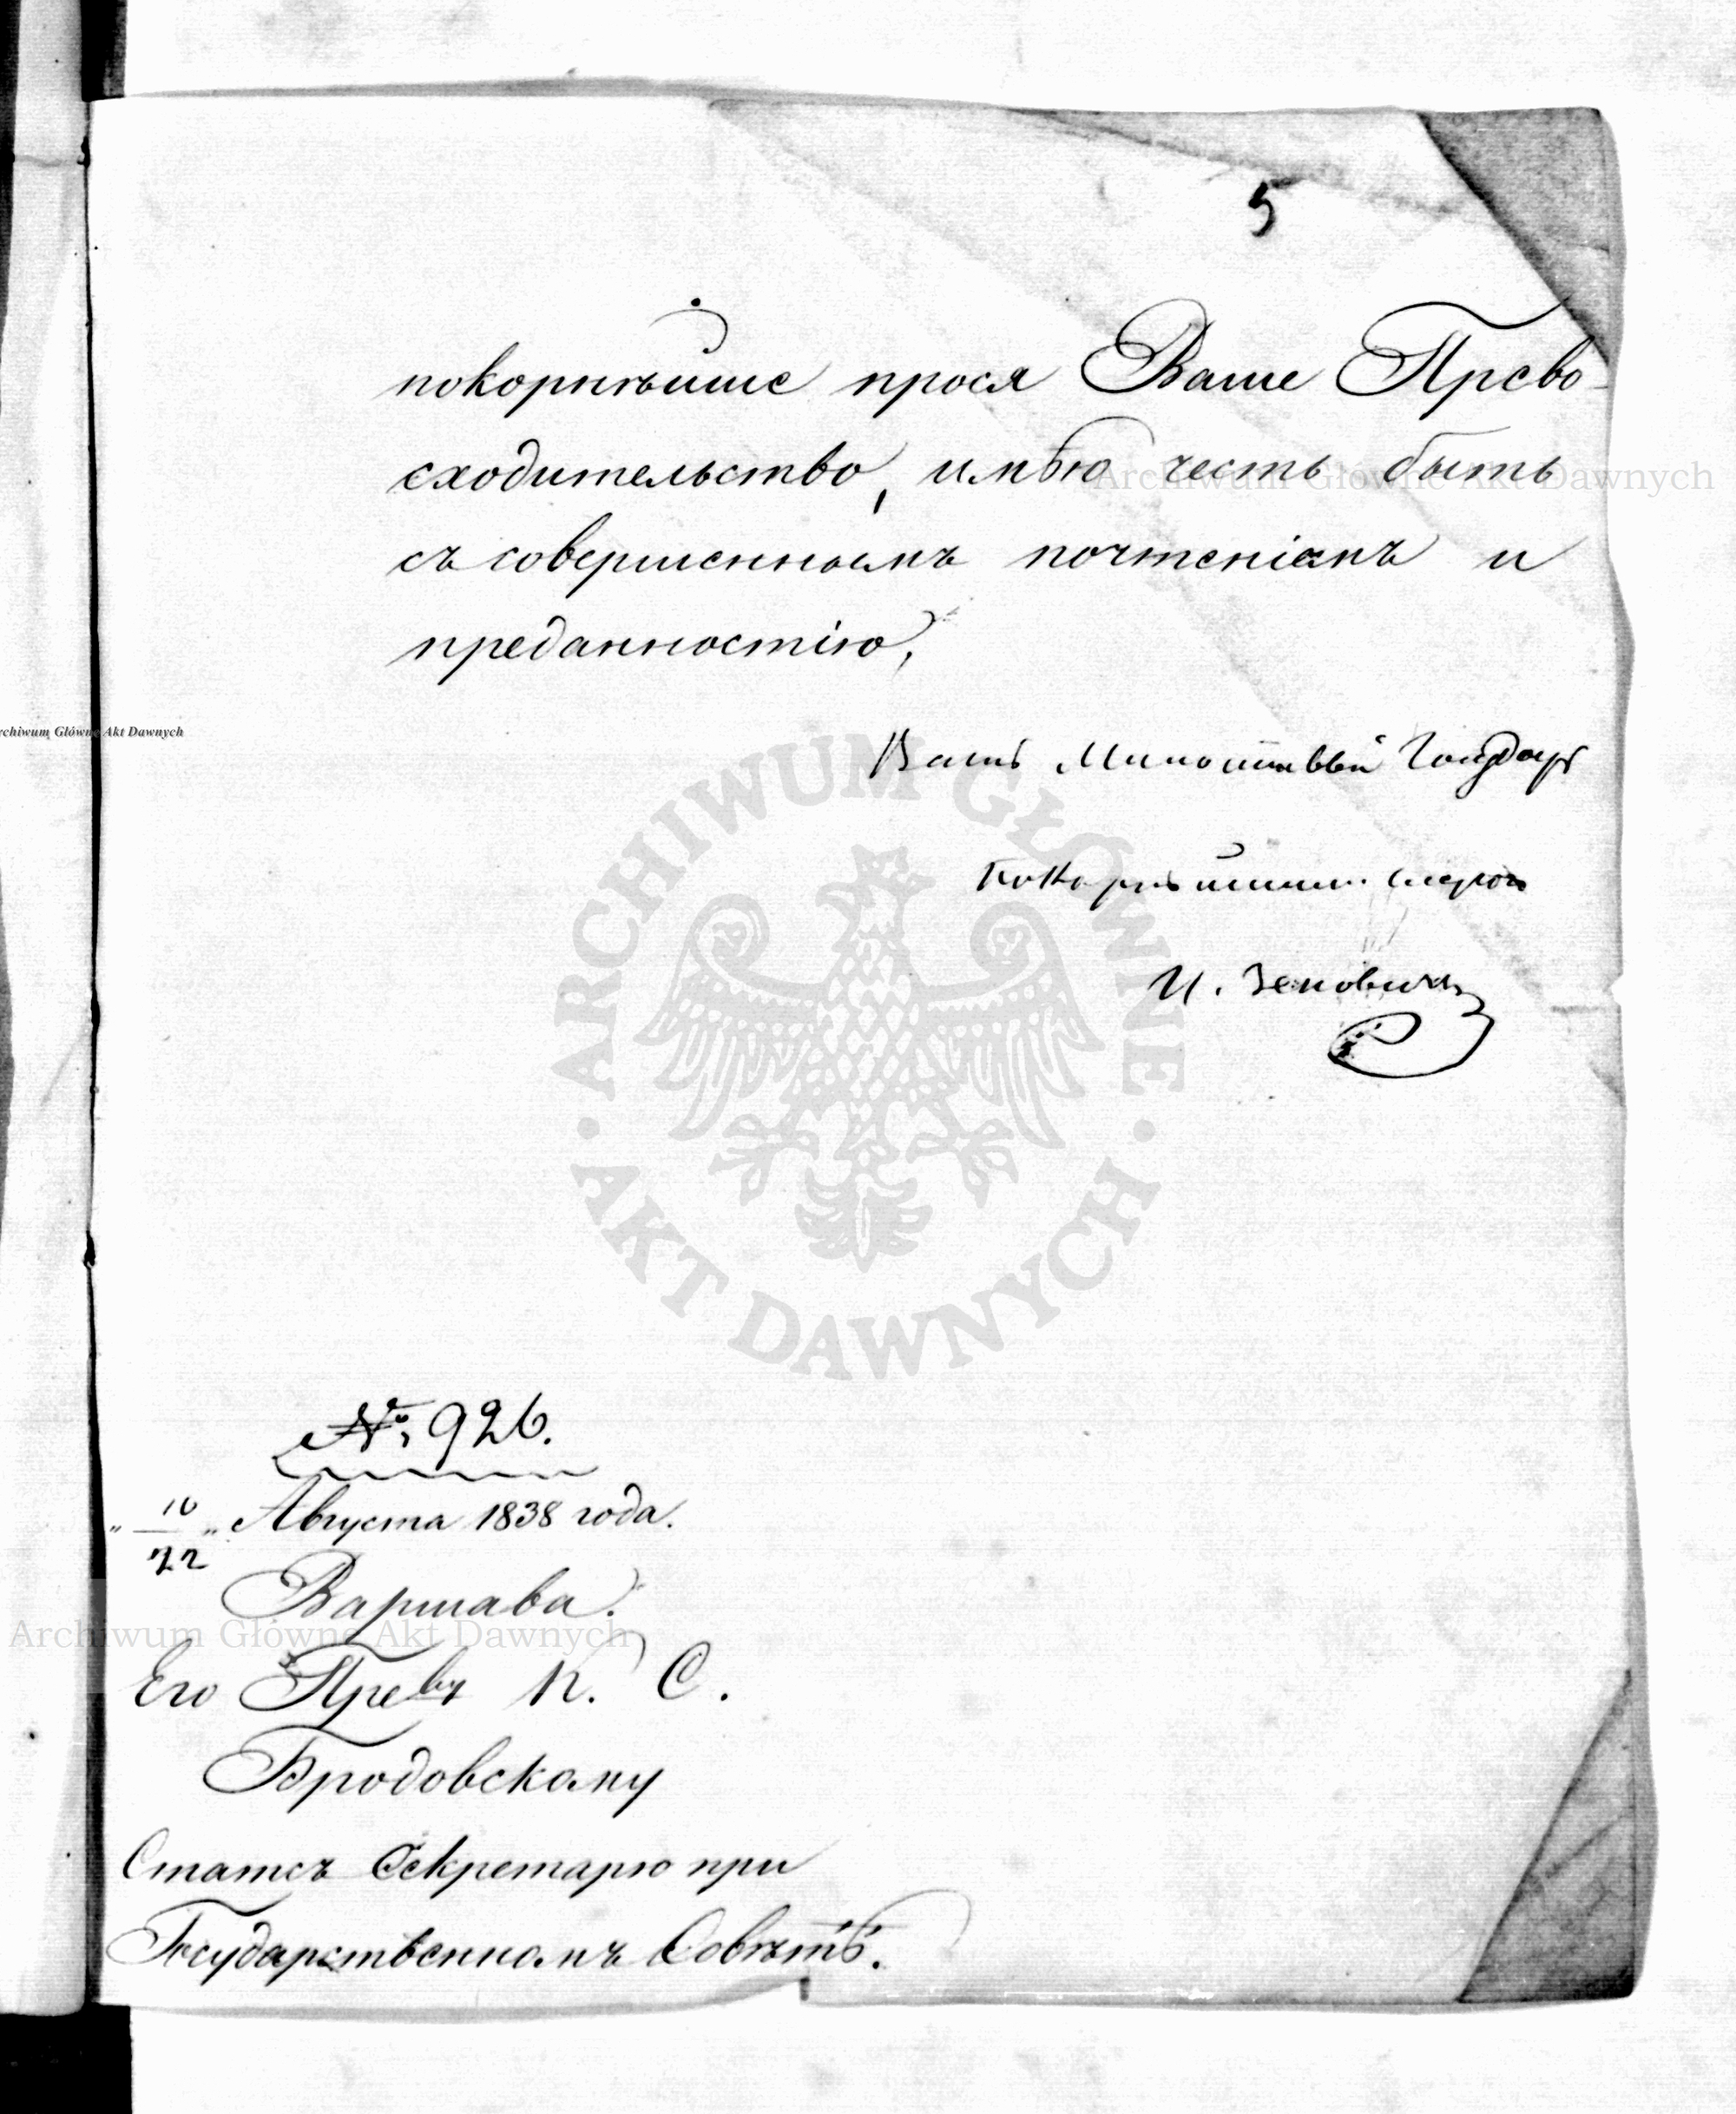 5
покорнѣйше прося Ваше Прево-
сходительство, имѣю честь быть
съ совершеннымъ почтеніемъ и
преданностію,
Вашъ Милостивый Государь
покорнѣйшимъ слугою
И. Зеновичъ
№ 926.
„ 10/22 „ Августа 1838 года.
Варшава.
Его Прев К. С.
Бродовскому
Статсъ Секретарю при
Государственномъ Совѣтѣ.
Archiwum Główne Akt Dawnych
Archiwum Główne Akt Dawnych
Archiwum Główne Akt Dawnych
ARCHIWUM GŁÓWNE
AKT DAWNYCH